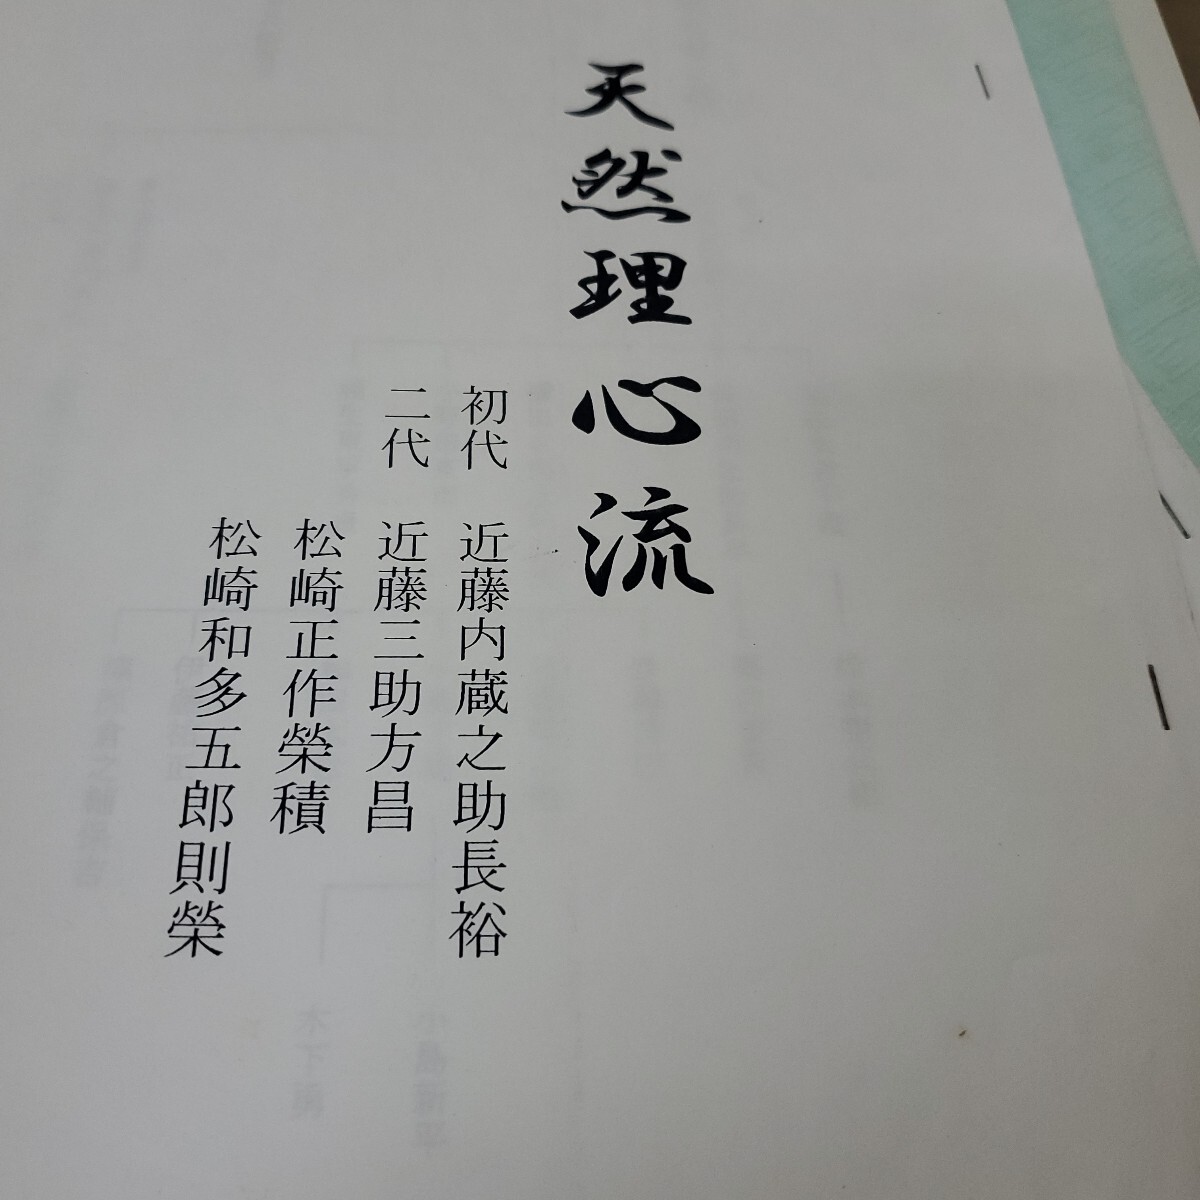 天然理心流
初代 近藤内蔵之助長裕
二代 近藤三助方昌
松崎正作榮積
松崎和多五郎則榮